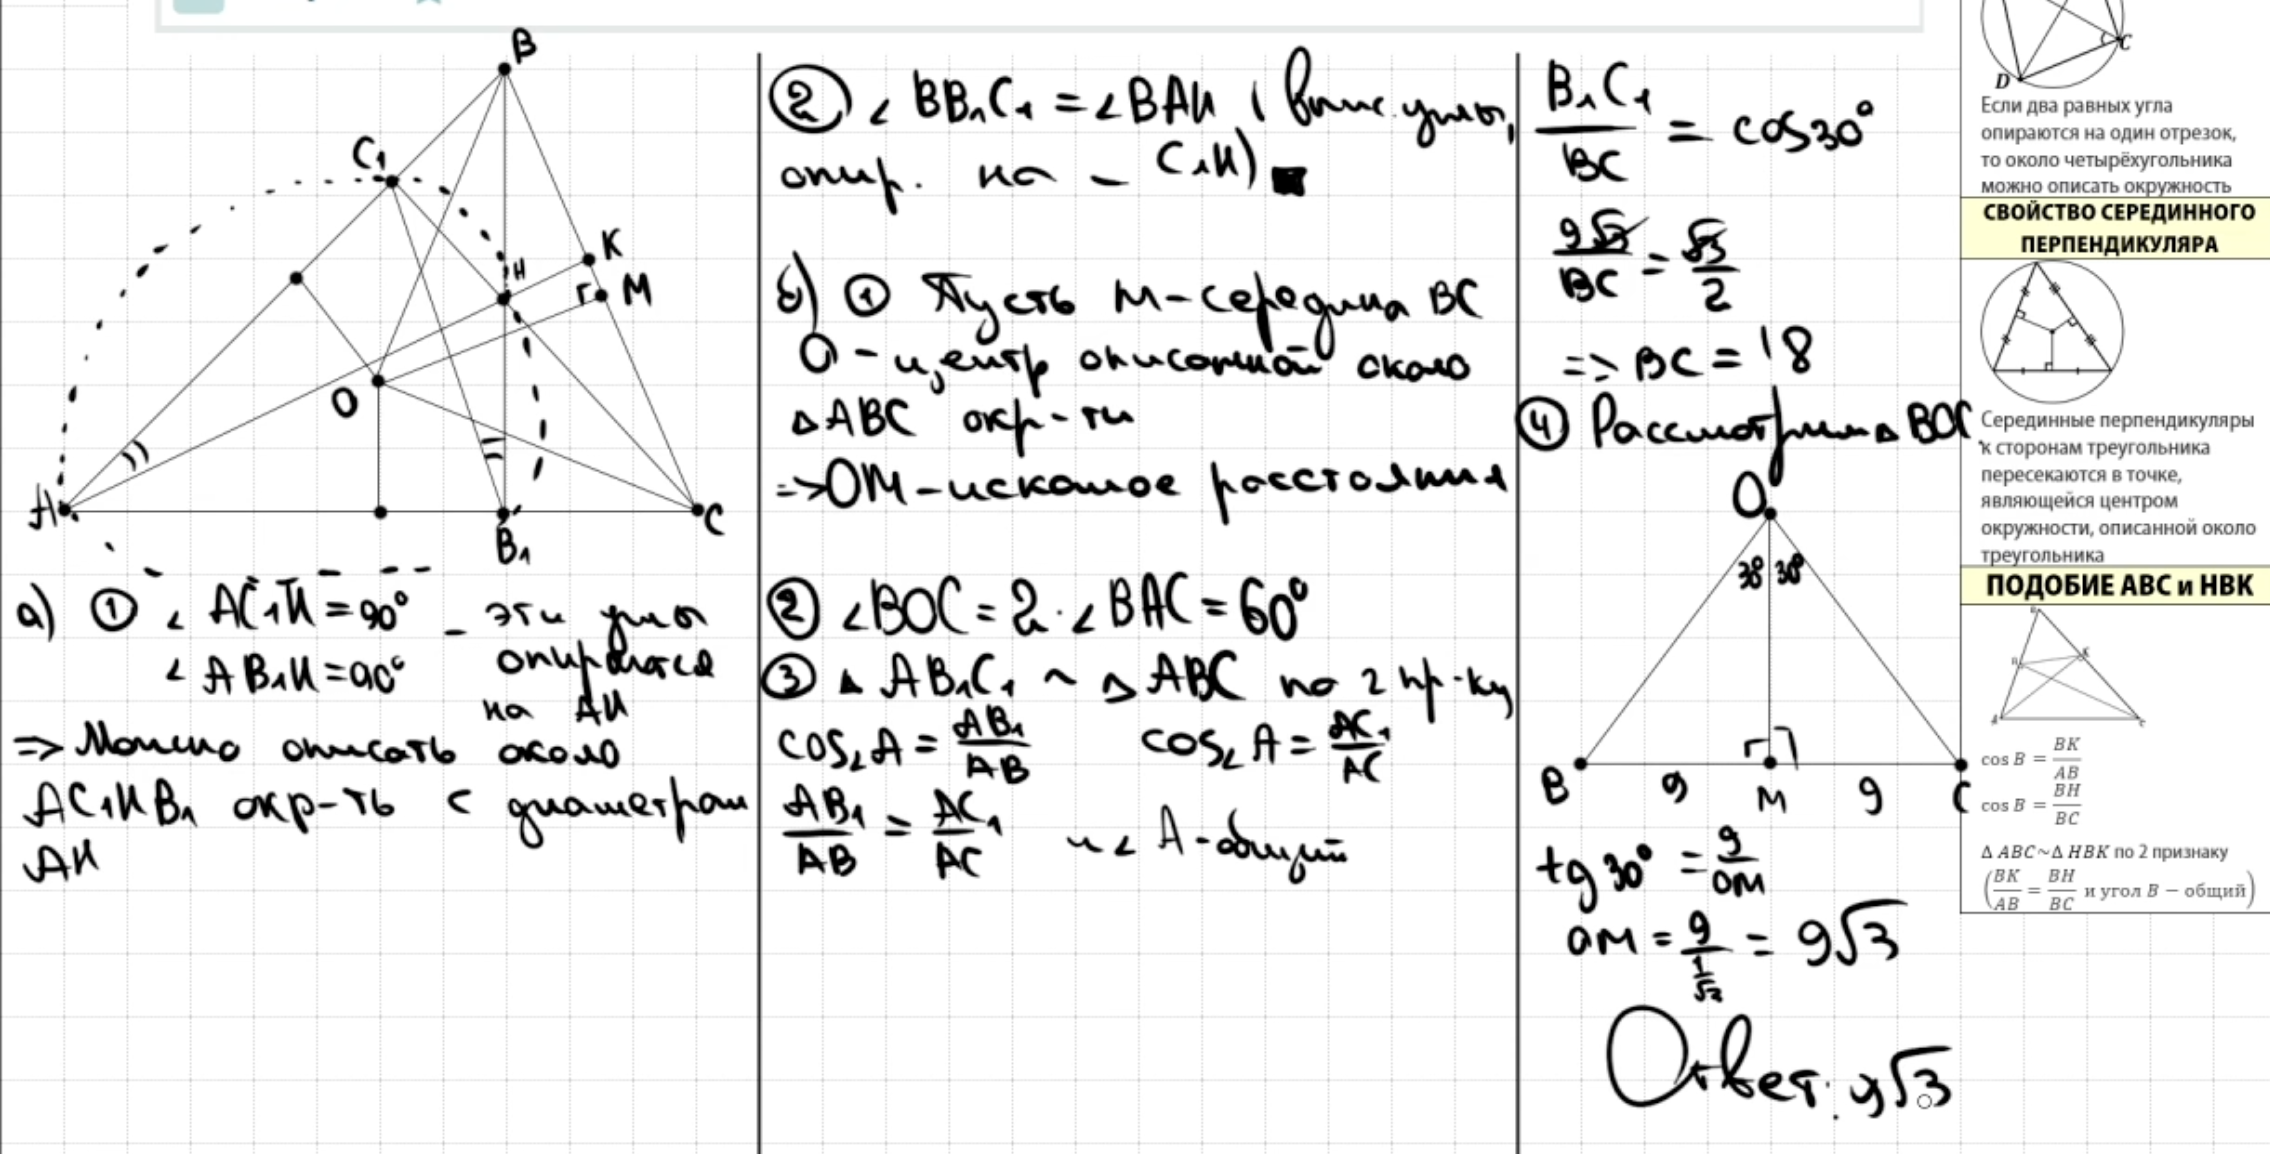 B
C₁
K
H
M
O
A
B₁
C
а) ① ∠AC₁H = 90°
∠AB₁H = 90°
– эти углы
опираются
на AH
=> Можно описать около
AC₁HB₁ окр-ть с диаметром
AH
② ∠BB₁C₁ = ∠BAH (впис. углы,
опир. на ⌣ C₁H) ■
б) ① Пусть M – середина BC
O – центр описанной около
△ABC окр-ти
=> OM – искомое расстояния
② ∠BOC = 2·∠BAC = 60°
③ △AB₁C₁ ~ △ABC по 2 пр-ку
cos∠A = AB₁/AB cos∠A = AC₁/AC
AB₁/AB = AC₁/AC и ∠A – общий
B₁C₁/BC = cos30°
9√3/BC = √3/2
=> BC = 18
④ Рассмотрим △BOC
O
30° 30°
B 9 M 9 C
tg 30° = 9/OM
OM = 9/(1/√3) = 9√3
Ответ: 9√3
C
D
Если два равных угла
опираются на один отрезок,
то около четырёхугольника
можно описать окружность
СВОЙСТВО СЕРЕДИННОГО
ПЕРПЕНДИКУЛЯРА
Серединные перпендикуляры
к сторонам треугольника
пересекаются в точке,
являющейся центром
окружности, описанной около
треугольника
ПОДОБИЕ ABC и HBK
cos B = BK/AB
cos B = BH/BC
Δ ABC~Δ HBK по 2 признаку
(BK/AB = BH/BC и угол B − общий)